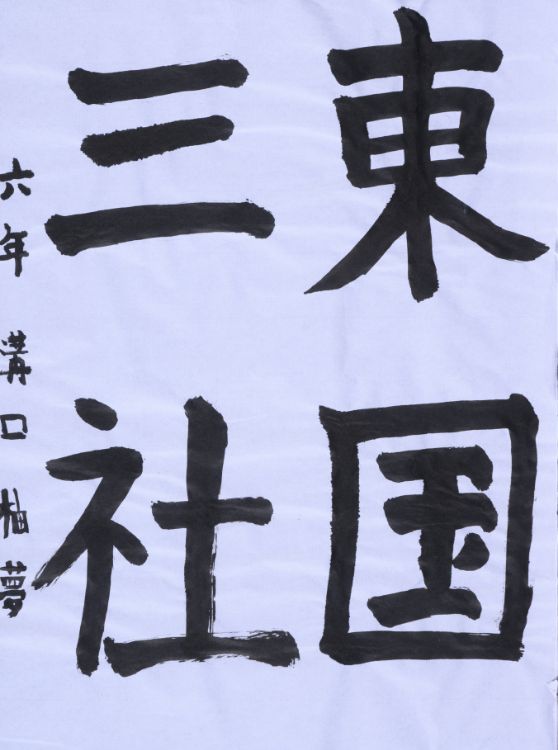 東国
三社
六年 溝口 柚夢